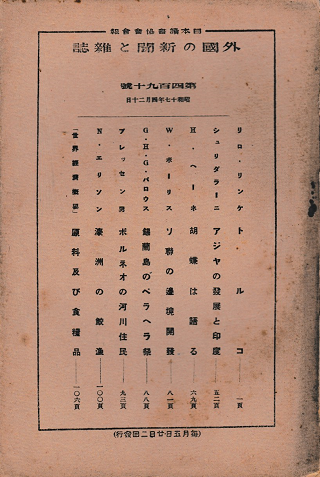 日本讀書協會會報
外國の新聞と雜誌
第四百九十號
昭和十七年四月二十日
リロ・リンケ トルコ――一頁
シュリダラーニ アジヤの發展と印度――五二頁
H・ヘーネ 胡蝶は語る――六九頁
W・ボーリス ソ聯の邊境開發――八一頁
G・H・G・バロウス 錫蘭島のペラヘラ祭――八八頁
アレッセン男 ボルネオの河川住民――九三頁
N・エリソン 濠洲の鮫漁――一〇〇頁
「世界經濟概要」 原料及び食糧品――一〇六頁
(毎月五日廿日二回發行)